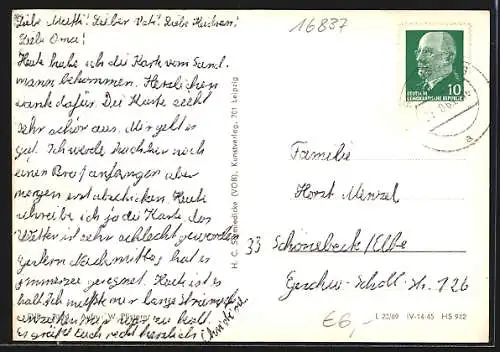 16837
Liebe Mutti! Lieber Vati! Liebe
Liebe Oma!
Heute habe ich die Karte vom Sand-
mann bekommen. Herzlichen
Dank dafür. Die Karte sieht
sehr schön aus. Mir geht es
gut. Ich werde nachher noch
einen Brief anfangen aber
morgen erst abschicken. Heute
schreibe ich ja die Karte. Das
Wetter ist sehr schlecht geworden
gestern Nachmittag hat es
immerzu geregnet. Heute ist es
kalt. Ich mußte mir lange Strümpfe
anziehen
Es grüßt Euch recht herzlich
Christine
H. C. Schmiedicke (VOB), Kunstverlag, 701 Leipzig
DEUTSCHE
DEMOKRATISCHE REPUBLIK
10
Familie
Horst Menzel
33 Schönebeck/Elbe
Geschw.-Scholl-Str. 126
€6,-
L 22/69 IV-14-45 HS 912